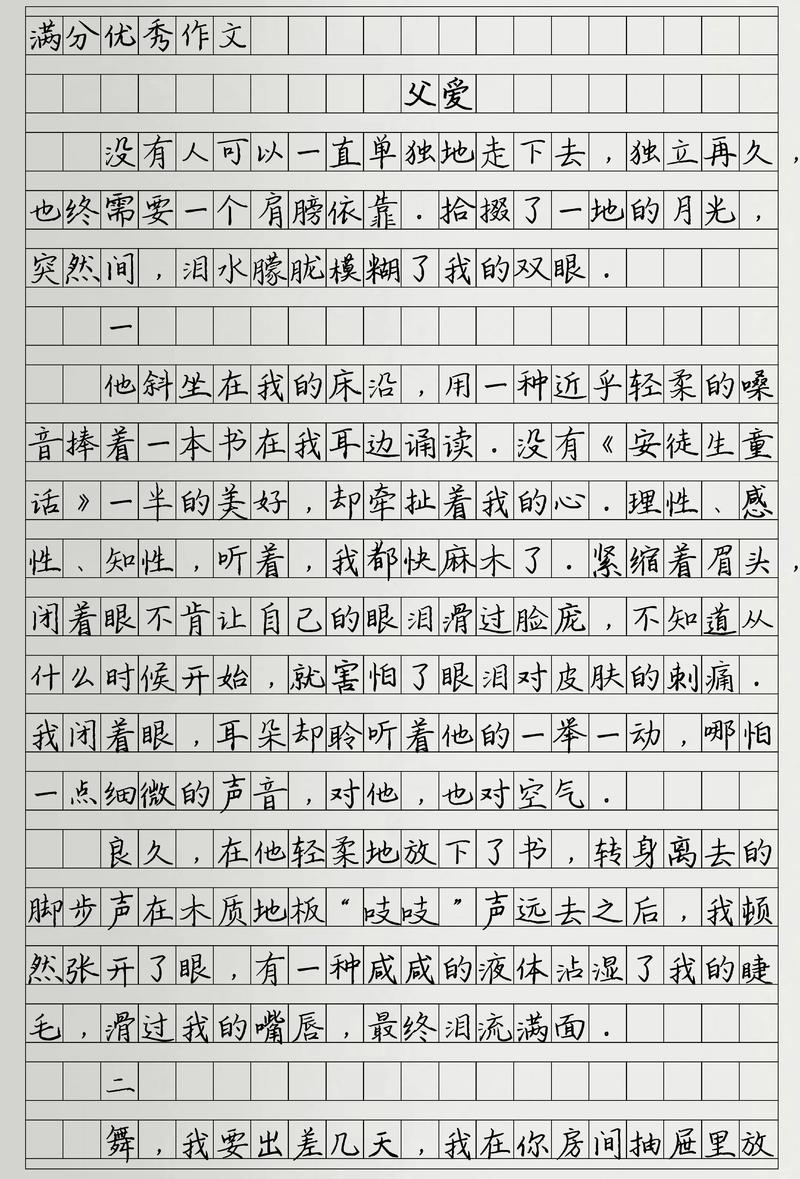 满分优秀作文
父爱
没有人可以一直单独地走下去，独立再久，
也终需要一个肩膀依靠．拾掇了一地的月光，
突然间，泪水朦胧模糊了我的双眼．
一
他斜坐在我的床沿，用一种近乎轻柔的嗓
音捧着一本书在我耳边诵读．没有《安徒生童
话》一半的美好，却牵扯着我的心．理性、感
性、知性，听着，我都快麻木了．紧缩着眉头，
闭着眼不肯让自己的眼泪滑过脸庞，不知道从
什么时候开始，就害怕了眼泪对皮肤的刺痛．
我闭着眼，耳朵却聆听着他的一举一动，哪怕
一点细微的声音，对他，也对空气．
良久，在他轻柔地放下了书，转身离去的
脚步声在木质地板“吱吱”声远去之后，我顿
然张开了眼，有一种咸咸的液体沾湿了我的睫
毛，滑过我的嘴唇，最终泪流满面．
二
舞，我要出差几天，我在你房间抽屉里放